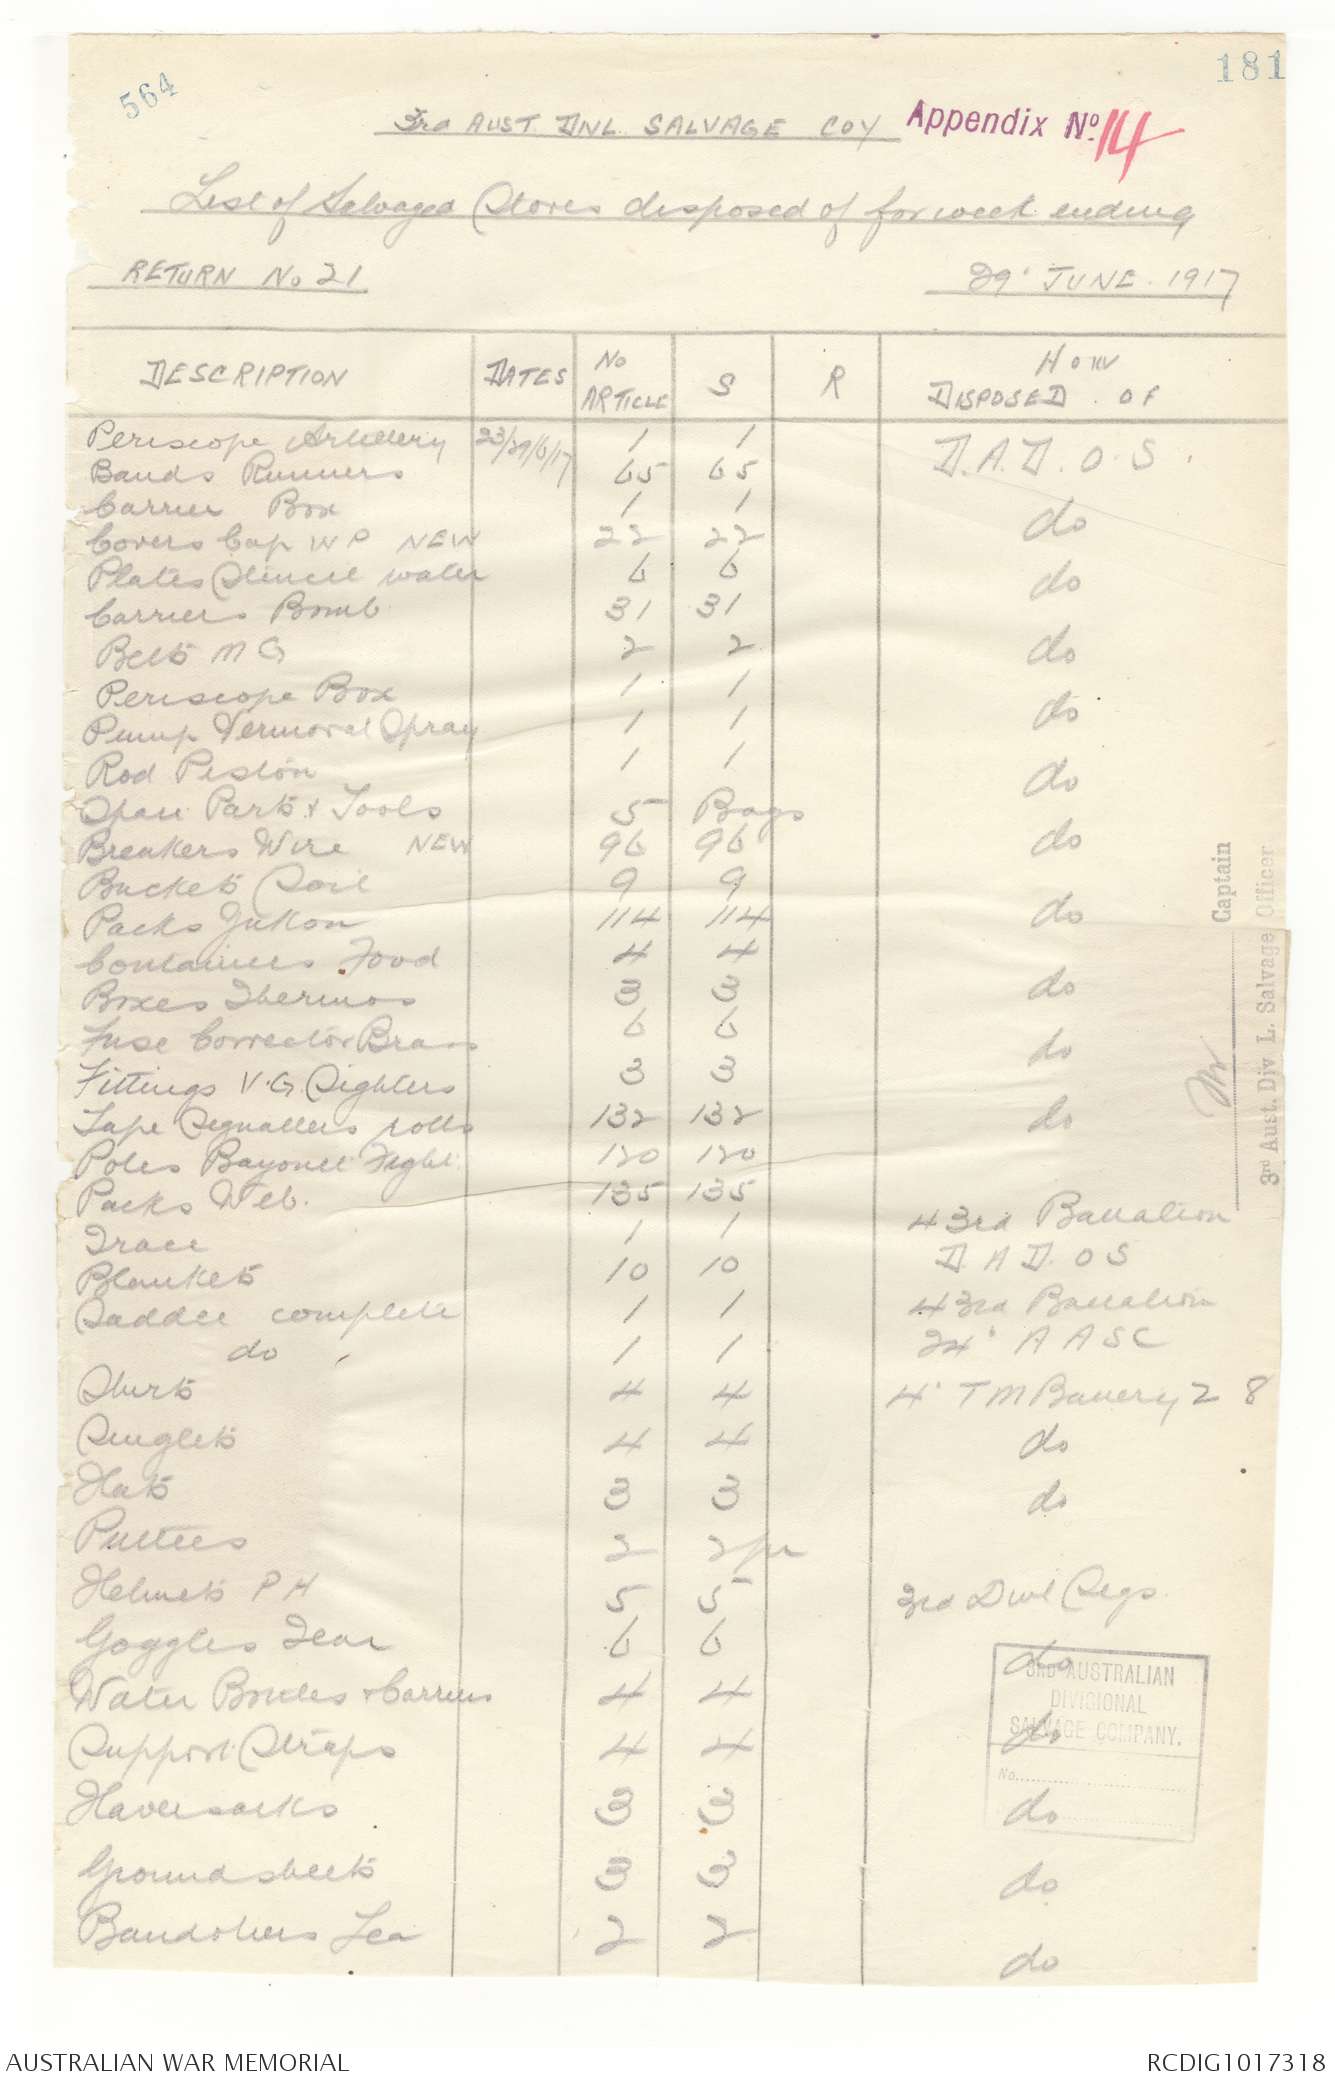 564
181
3rd AUST. DNL SALVAGE COY Appendix No. 14
List of Salvaged Stores disposed of for week ending
RETURN No 21 29' JUNE. 1917
DESCRIPTION DATES No ARTICLE S R HOW DISPOSED OF
Periscope Artillery 23/29/6/17 1 1 D.A.D.O.S.
Bands Runners 65 65
Carrier Box 1 1 do
Covers Cap WP NEW 22 22
Plates Stencil water 6 6 do
Carriers Bomb 31 31
Belts M G 2 2 do
Periscope Box 1 1
Pump Vermoral Spray 1 1 do
Rod Piston 1 1 do
Spare Parts & Tools 5 Bags
Breakers Wire NEW 96 96 do
Buckets Soil 9 9
Packs Yukon 114 114 do
Containers Food 4 4
Boxes Thermos 3 3 do
Fuse Corrector Brass 6 6
Fittings V.G Sighters 3 3 do
Tape Signallers rolls 132 132 do
Poles Bayonet Fight. 120 120
Packs Web. 135 135
Trace 1 1 43rd Battalion
Blankets 10 10 D A D. O S
Saddle complete 1 1 43rd Battalion
do 1 1 24' A A S C
Shirts 4 4 4' T M Battery 2 8
Singlets 4 4 do
Hats 3 3 do
Puttees 2 2 pr
Helmets P H 5 5 3rd Divl Sigs.
Goggles Tear 6 6 do
Water Bottles & Carriers 4 4
Support Straps 4 4 do
Haversacks 3 3 do
Ground sheets 3 3 do
Bandoliers Lea 2 2 do
Captain
3rd Aust. Div L. Salvage Officer
3RD AUSTRALIAN
DIVISIONAL
SALVAGE COMPANY.
No.
AUSTRALIAN WAR MEMORIAL RCDIG1017318